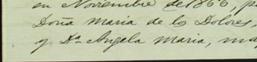 en Noviembre de 1866, p
Doña Maria de los Dolores,
y Da Angela Maria, ma